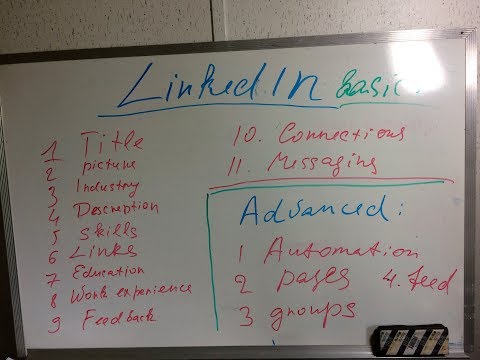 LinkedIn basic
1 Title
2 picture
3 Industry
4 Description
5 Skills
6 Links
7 Education
8 Work experience
9 Feedback
10. Connections
11. Messaging
Advanced:
1 Automation
2 pages 4. feed
3 groups